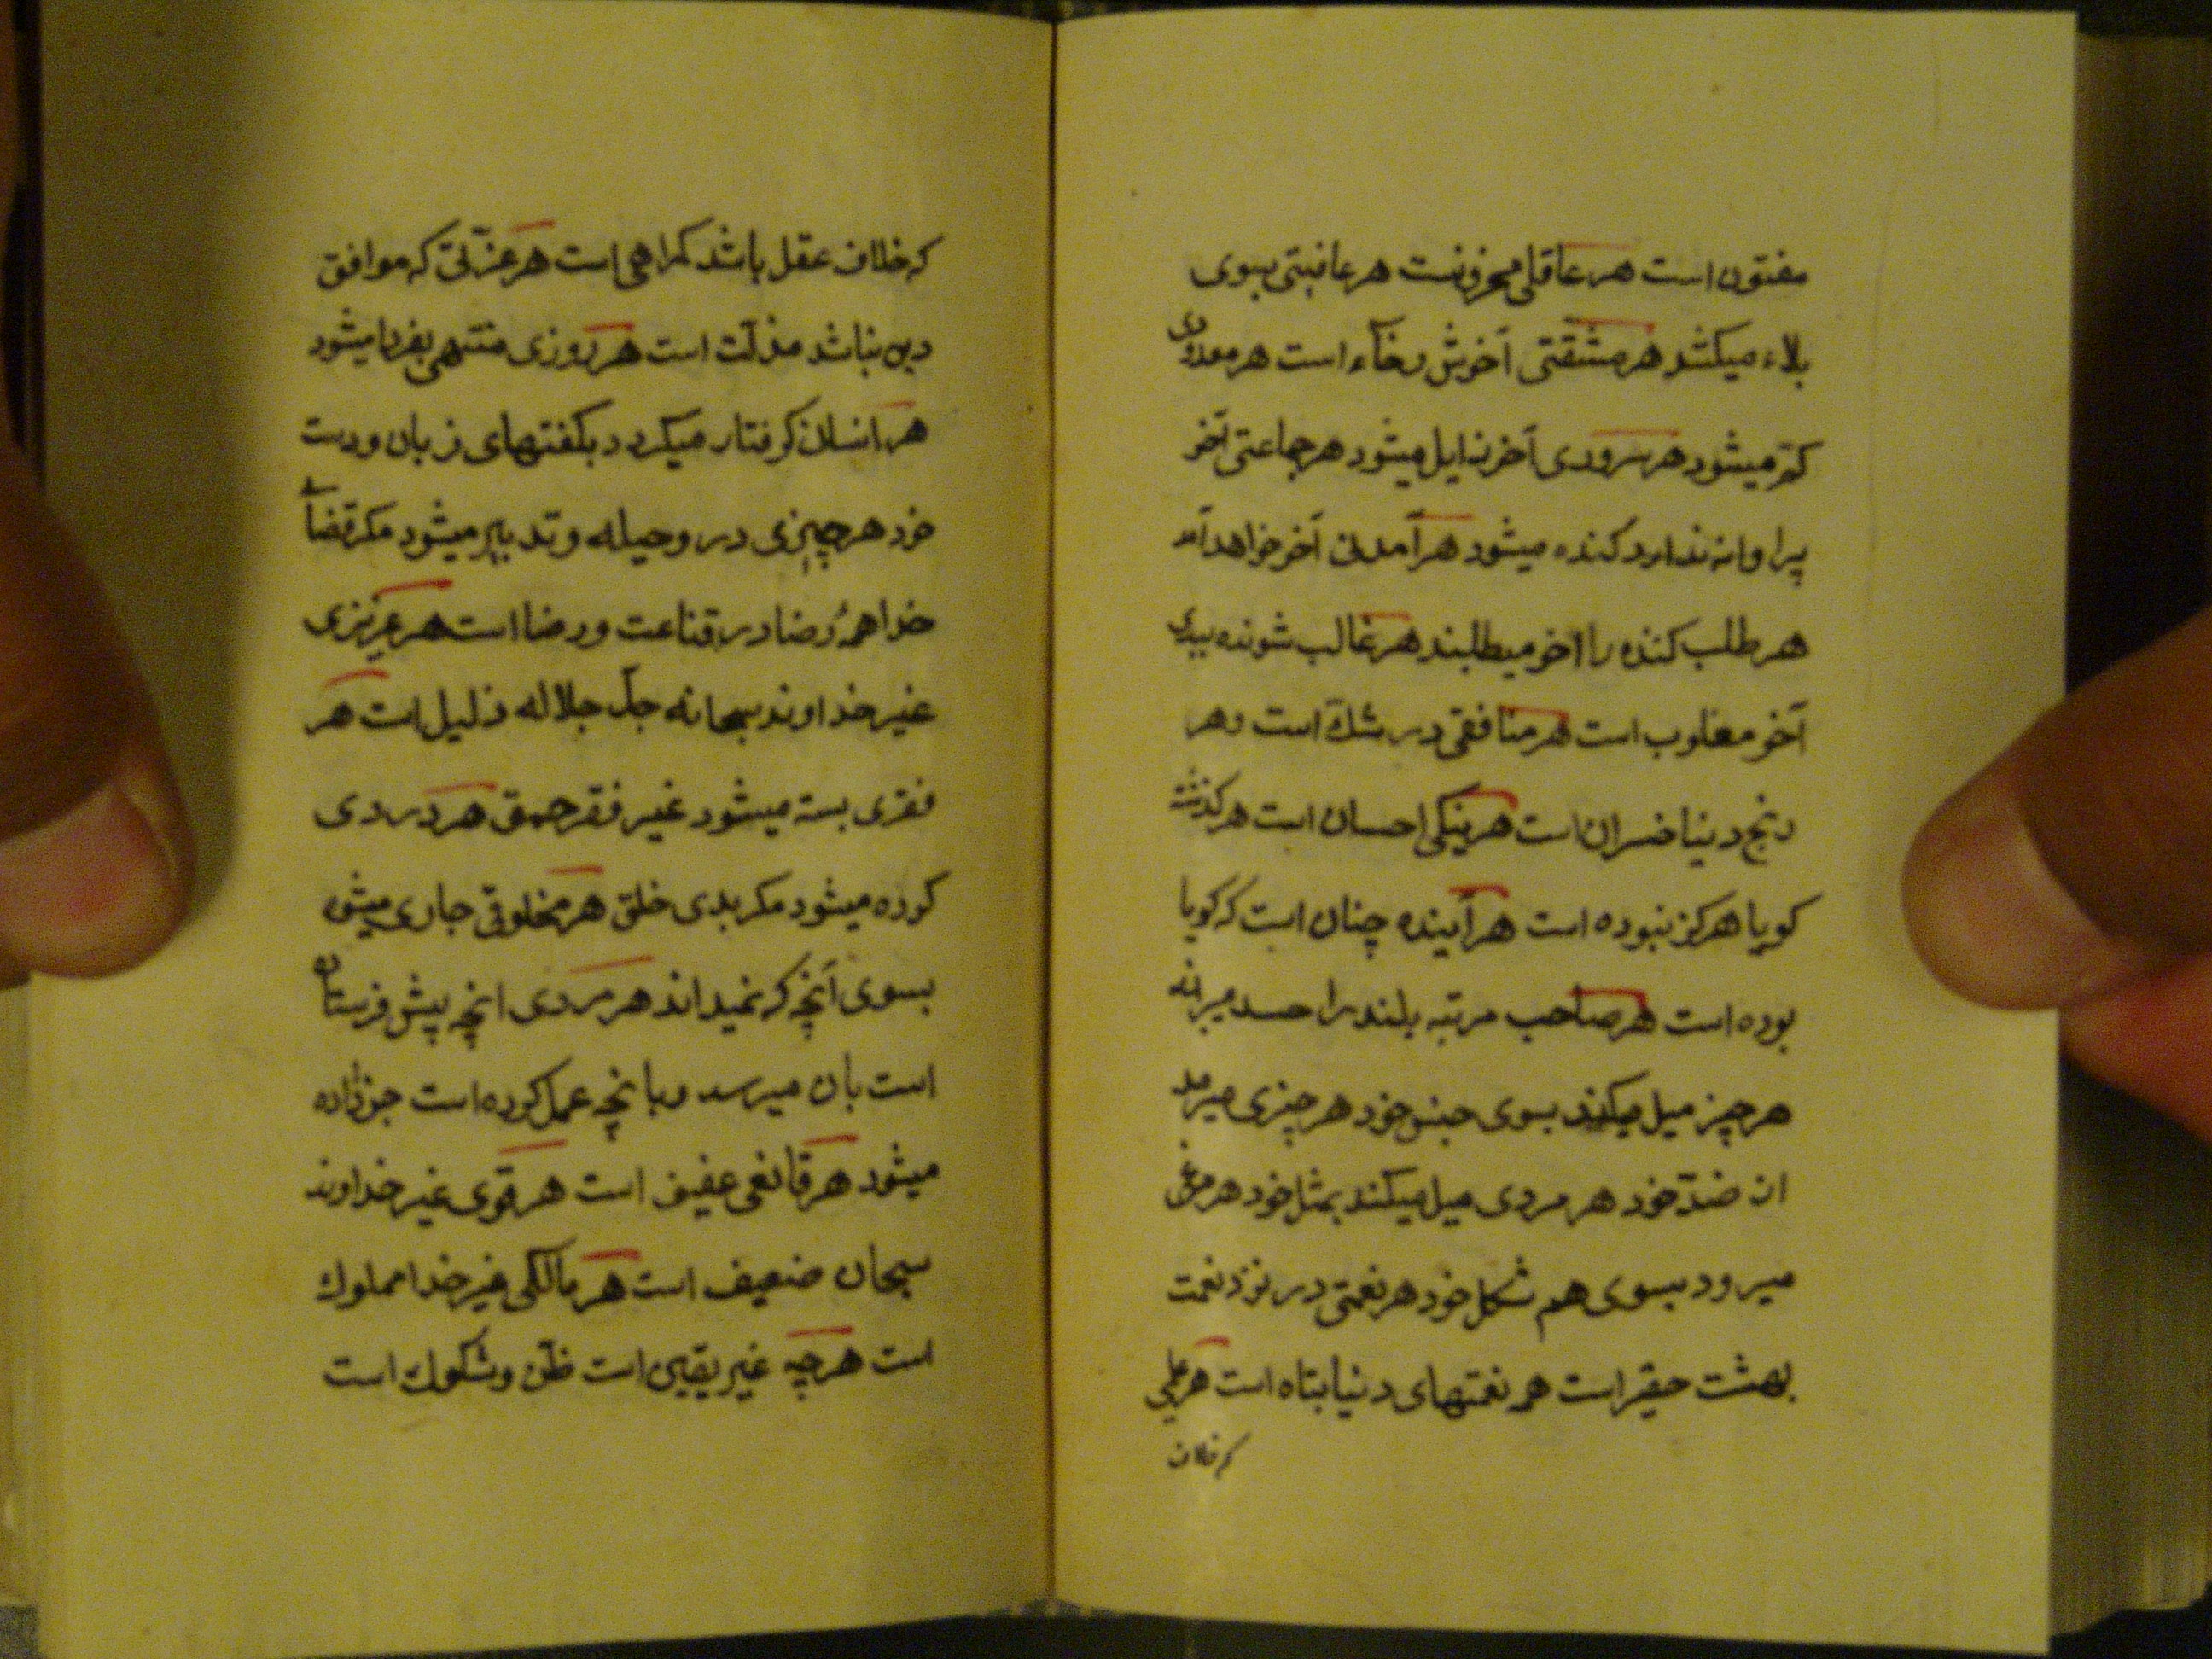 مفتون است هر عاقلی محزونست هر عافیتی بسوی
بلاء میکشد هر مشقتی آخرش رخآء است هر معدودی
کم میشود هر سروری آخر زایل میشود هر جماعتی آخر
پراوانه نداردکنده میشود هر آمدنی آخر خواهد آمد
هر طلب کننده را آخر میطلبند هر غالب شونده ببدی
آخر مغلوب است هر منافقی در شك است و هر
رنج دنیا خسران است هر نیکی احسان است هر کذشته
کویا هرکز نبوده است هر آینده چنان است که کویا
بوده است هر صاحب مرتبه بلند را حسد میبرند
هر چیز میل میکند بسوی جنس خود هر چیزی میرمد
از ضدّ خود هر مردی میل میکند بمثل خود هر مرغی
میرود بسوی هم شکل خود هر نعمتی در نزد نعمت
بهشت حقیر است همه نعمتهای دنیا بتاه است هر علمی
که خلاف
که خلاف عقل باشد کمراهی است هر عزّتی که موافق
دین نباشد مذلّت است هر روزی منتهی بفردا میشود
هر انسان کرفتار میکردد بکفتهای زبان و دست
خود هر چیزی در و حیله و تدبیر میشود مکر قضآء
خدا همهٔ رضا در قناعت و رضا است هر عزیزی
غیر خداوند سبحانه جلّ جلاله ذلیل است هر
فقری بسته میشود غیر فقر حمق هر دردی
کرده میشود مکر بدی خلق هر مخلوقی جاری میشود
بسوی آنچه که نمیداند هر مردی انچه پیش فرستاده
است بان میرسد و با نچه عمل کرده است جزا داده
میشود هر قانعی عفیف است هر قوی غیر خداوند
سبحان ضعیف است هر مالکی غیر خدا مملوك
است هر چه غیر یقین است ظنّ و شکوك است